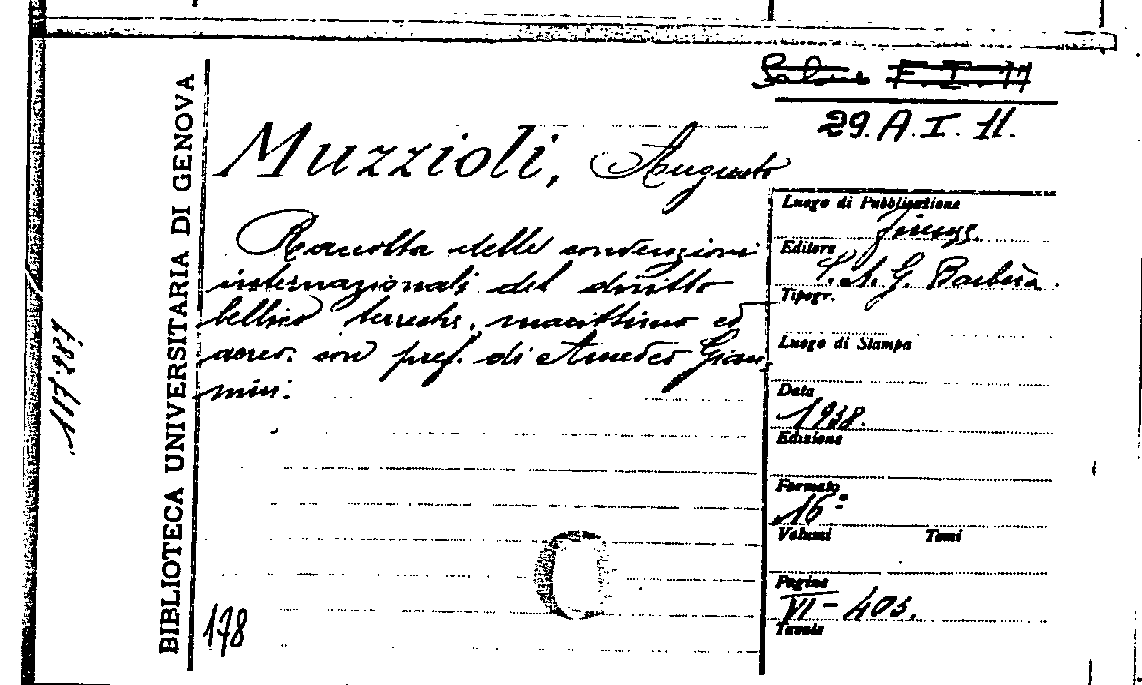 Salone F.I.11
29.A.I.11.
BIBLIOTECA UNIVERSITARIA DI GENOVA
Muzzioli, Augusto
Raccolta delle convenzioni
internazionali del diritto
bellico terrestre, marittimo ed
aereo. con pref. di Amedeo Gian-
nini.
117.289
178
Luogo di Pubblicazione
Firenze
Editore
S. A. G. Barbèra.
Tipogr.
Luogo di Stampa
Data
1938.
Edizione
Formato
16°
Volumi Tomi
Pagine
VI-403.
Tavole